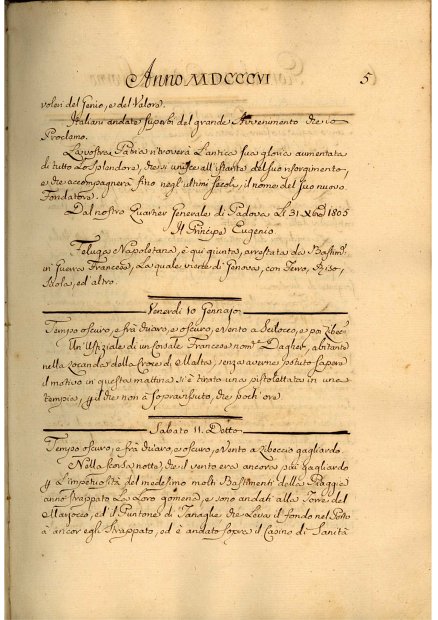 Anno MDCCCVI
5
voleri del Genio, e del Valore.
Italiani andate superbi del grande Avvenimento che io
Proclamo.
La vostra Patria ritroverà l'antica sua gloria aumentata
di tutto lo splendore, che si unisce all'istante del suo risorgimento,
e che accompagnerà fino negl'ultimi secoli, il nome del suo nuovo
Fondatore.
Dal nostro Quartier Generale di Padova li 31 Xbre 1805
Il Principe Eugenio.
Feluga Napoletana, è qui giunta, arrestata da Bastimti
in Guerra Francese, la quale viene di Genova, con Ferro, Riso,
ed altro.
Venerdì 10 Gennajo
Tempo oscuro, e frà chiaro, e oscuro, e vento a Scilocco, e poi
Un'Uffiziale di un Corsale Francese nome Dagher, abitante
nella Locanda della Croce di Malta, senza averne potuto sapere
il motivo in questa mattina si è tirato una pistolettata in una
tempia, p il che non à sopravissuto, che poch'ore.
Sabato 11. Detto
Tempo oscuro, e frà chiaro, e oscuro, e vento a Libeccio gagliardo.
Nella scorsa notte, che il vento era ancora più gagliardo
p l'impetuosità del medesimo molti Bastimenti della Piaggia
anno strappato la loro gomena, e sono andati alla Torre del
Marzocco, ed il Puntone di Tanaglie che leva il fondo nel Porto
à ancor egli strappato, ed è andato sopra il Casino di Sanità